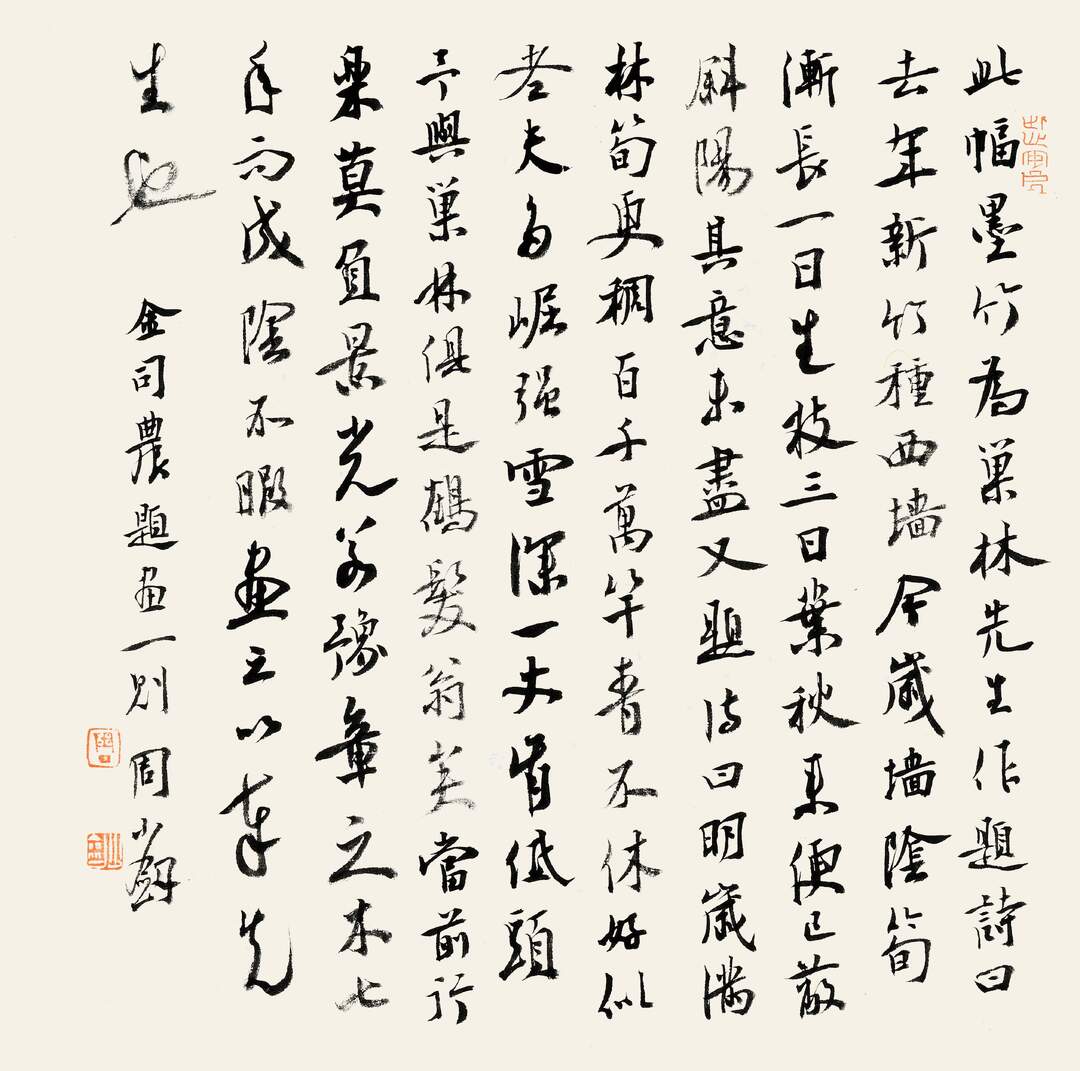 此幅墨竹為巢林先生作題詩曰
去年新竹種西墙今歲墙陰筍
漸長一日生枝三日葉秋來便已蔽
斜陽其意未盡又題詩曰明歲滿
林筍更稠百千萬竿青不休好似
老夫多崛强雪深一丈肯低頭
予與巢林俱是鶴髮翁矣當前行
樂莫負景光若豫章之木七
年而成陰不暇畫之以奉先
生也 金司農題畫一則 周小